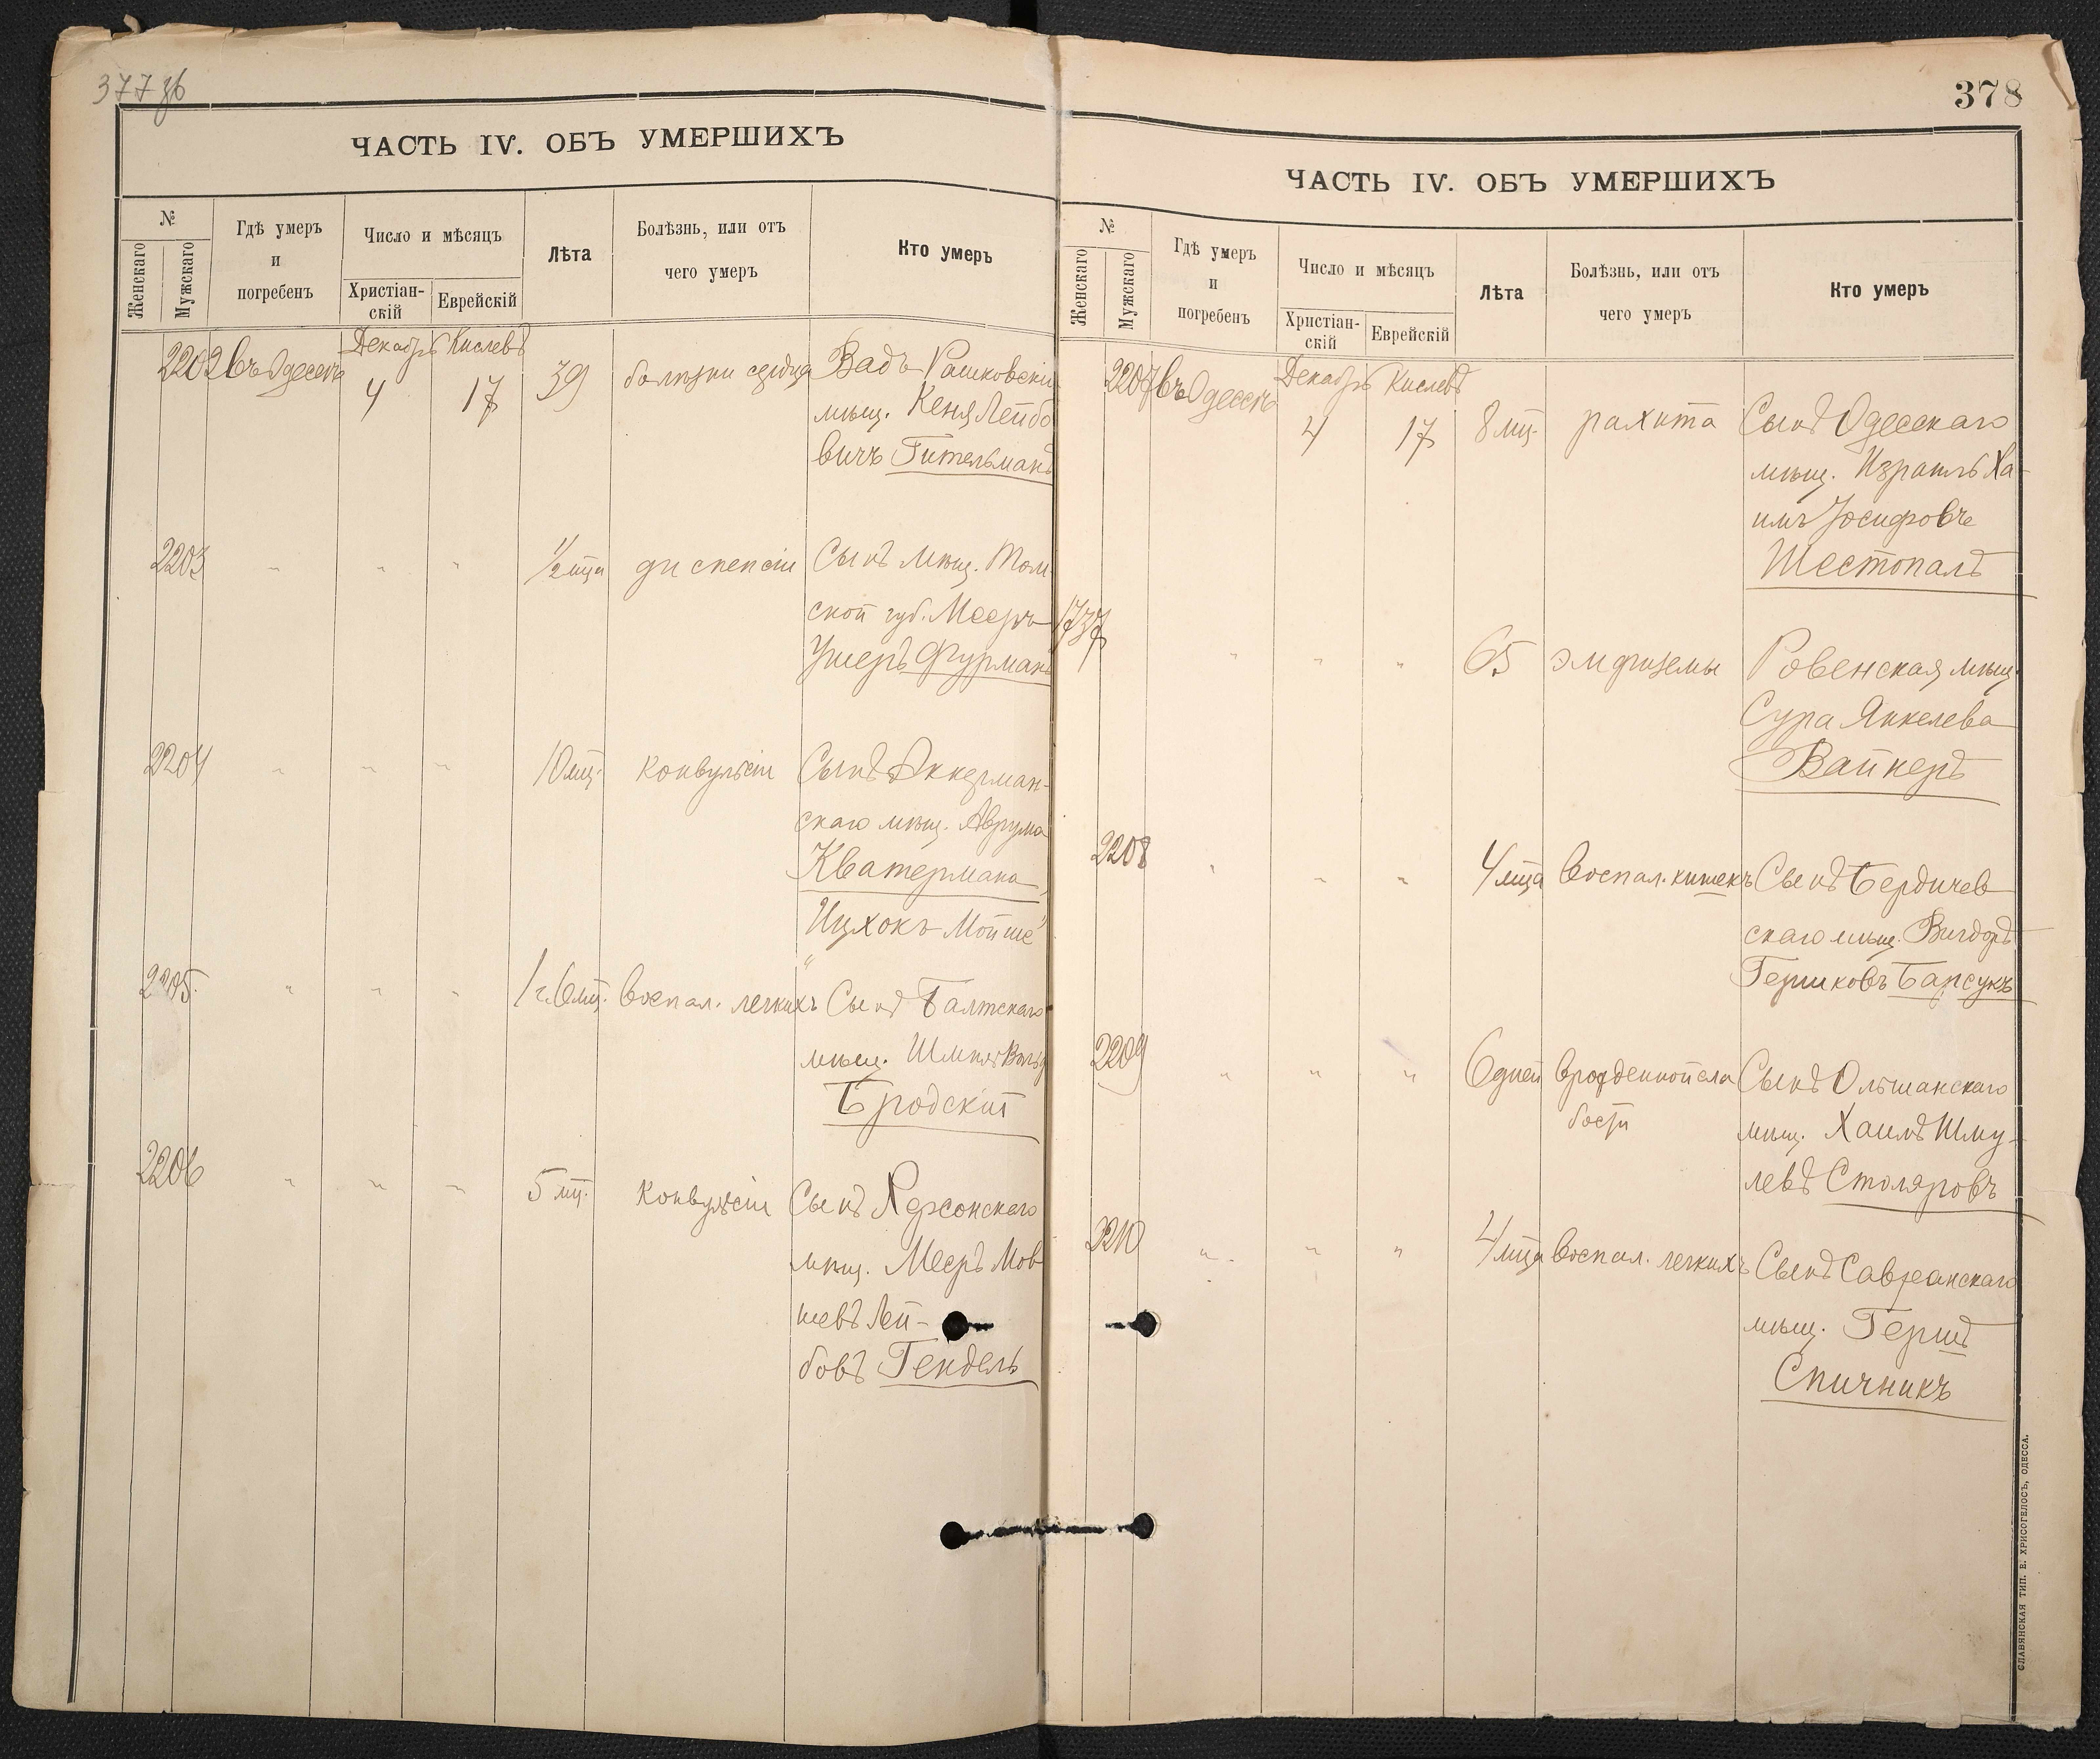 377 зв
ЧАСТЬ IV. ОБЪ УМЕРШИХЪ
№
Женскаго
Мужскаго
Гдѣ умеръ
и
погребенъ
Число и мѣсяцъ
Христіан-
скій
Еврейскій
Лѣта
Болѣзнь, или отъ
чего умеръ
Кто умеръ
Декабрь Кислевъ
2202 въ Одессѣ 4 17 39 болѣзни сердца Вадъ Рашковскій
мѣщ. Кеня Лейбо
вичъ Гительманъ
2203 " " " 1/2 мца диспепсіи Сынъ мѣщ. Том
ской губ. Мееръ
Ушеръ Фурманъ
2204 " " " 10 мц. конвульсіи Сынъ Аккерман-
скаго мѣщ. Аврума
Кватермана,
Ицхокъ Мойше
2205. " " " 1 г. 6 мц. воспал. легкихъ Сынъ Балтскаго
мѣщ. Шмиля
Бродскій
2206 " " " 5 мц. конвульсіи Сынъ Херсонскаго
мѣщ. Мееръ Мов
шевъ Лей-
бовъ Гендель
378
ЧАСТЬ IV. ОБЪ УМЕРШИХЪ
№
Женскаго
Мужскаго
Гдѣ умеръ
и
погребенъ
Число и мѣсяцъ
Христіан-
скій
Еврейскій
Лѣта
Болѣзнь, или отъ
чего умеръ
Кто умеръ
Декабрь Кислевъ
2207 въ Одессѣ 4 17 8 мц. рахита Сынъ Одесскаго
мѣщ. Израиль Ха-
имъ Іосифовъ
Шестопалъ
1737 " " " 65 эмфиземы Ровенская мѣщ.
Сура Янкелева
Вайнеръ
2208 " " " 4 мца воспал. кишекъ Сынъ Бердичев
скаго мѣщ. Вигдоръ
Гершковъ Барсукъ
2209 " " " 6 дней врожденной сла Сынъ Ольшанскаго
бости
мѣщ. Хаимъ Шму-
левъ Столяровъ
2210 " " " 4 мца воспал. легкихъ Сынъ Савранскаго
мѣщ. Гершъ
Спичникъ
СЛАВЯНСКАЯ ТИП. Е. ХРИСОГЕЛОСЪ, ОДЕССА.